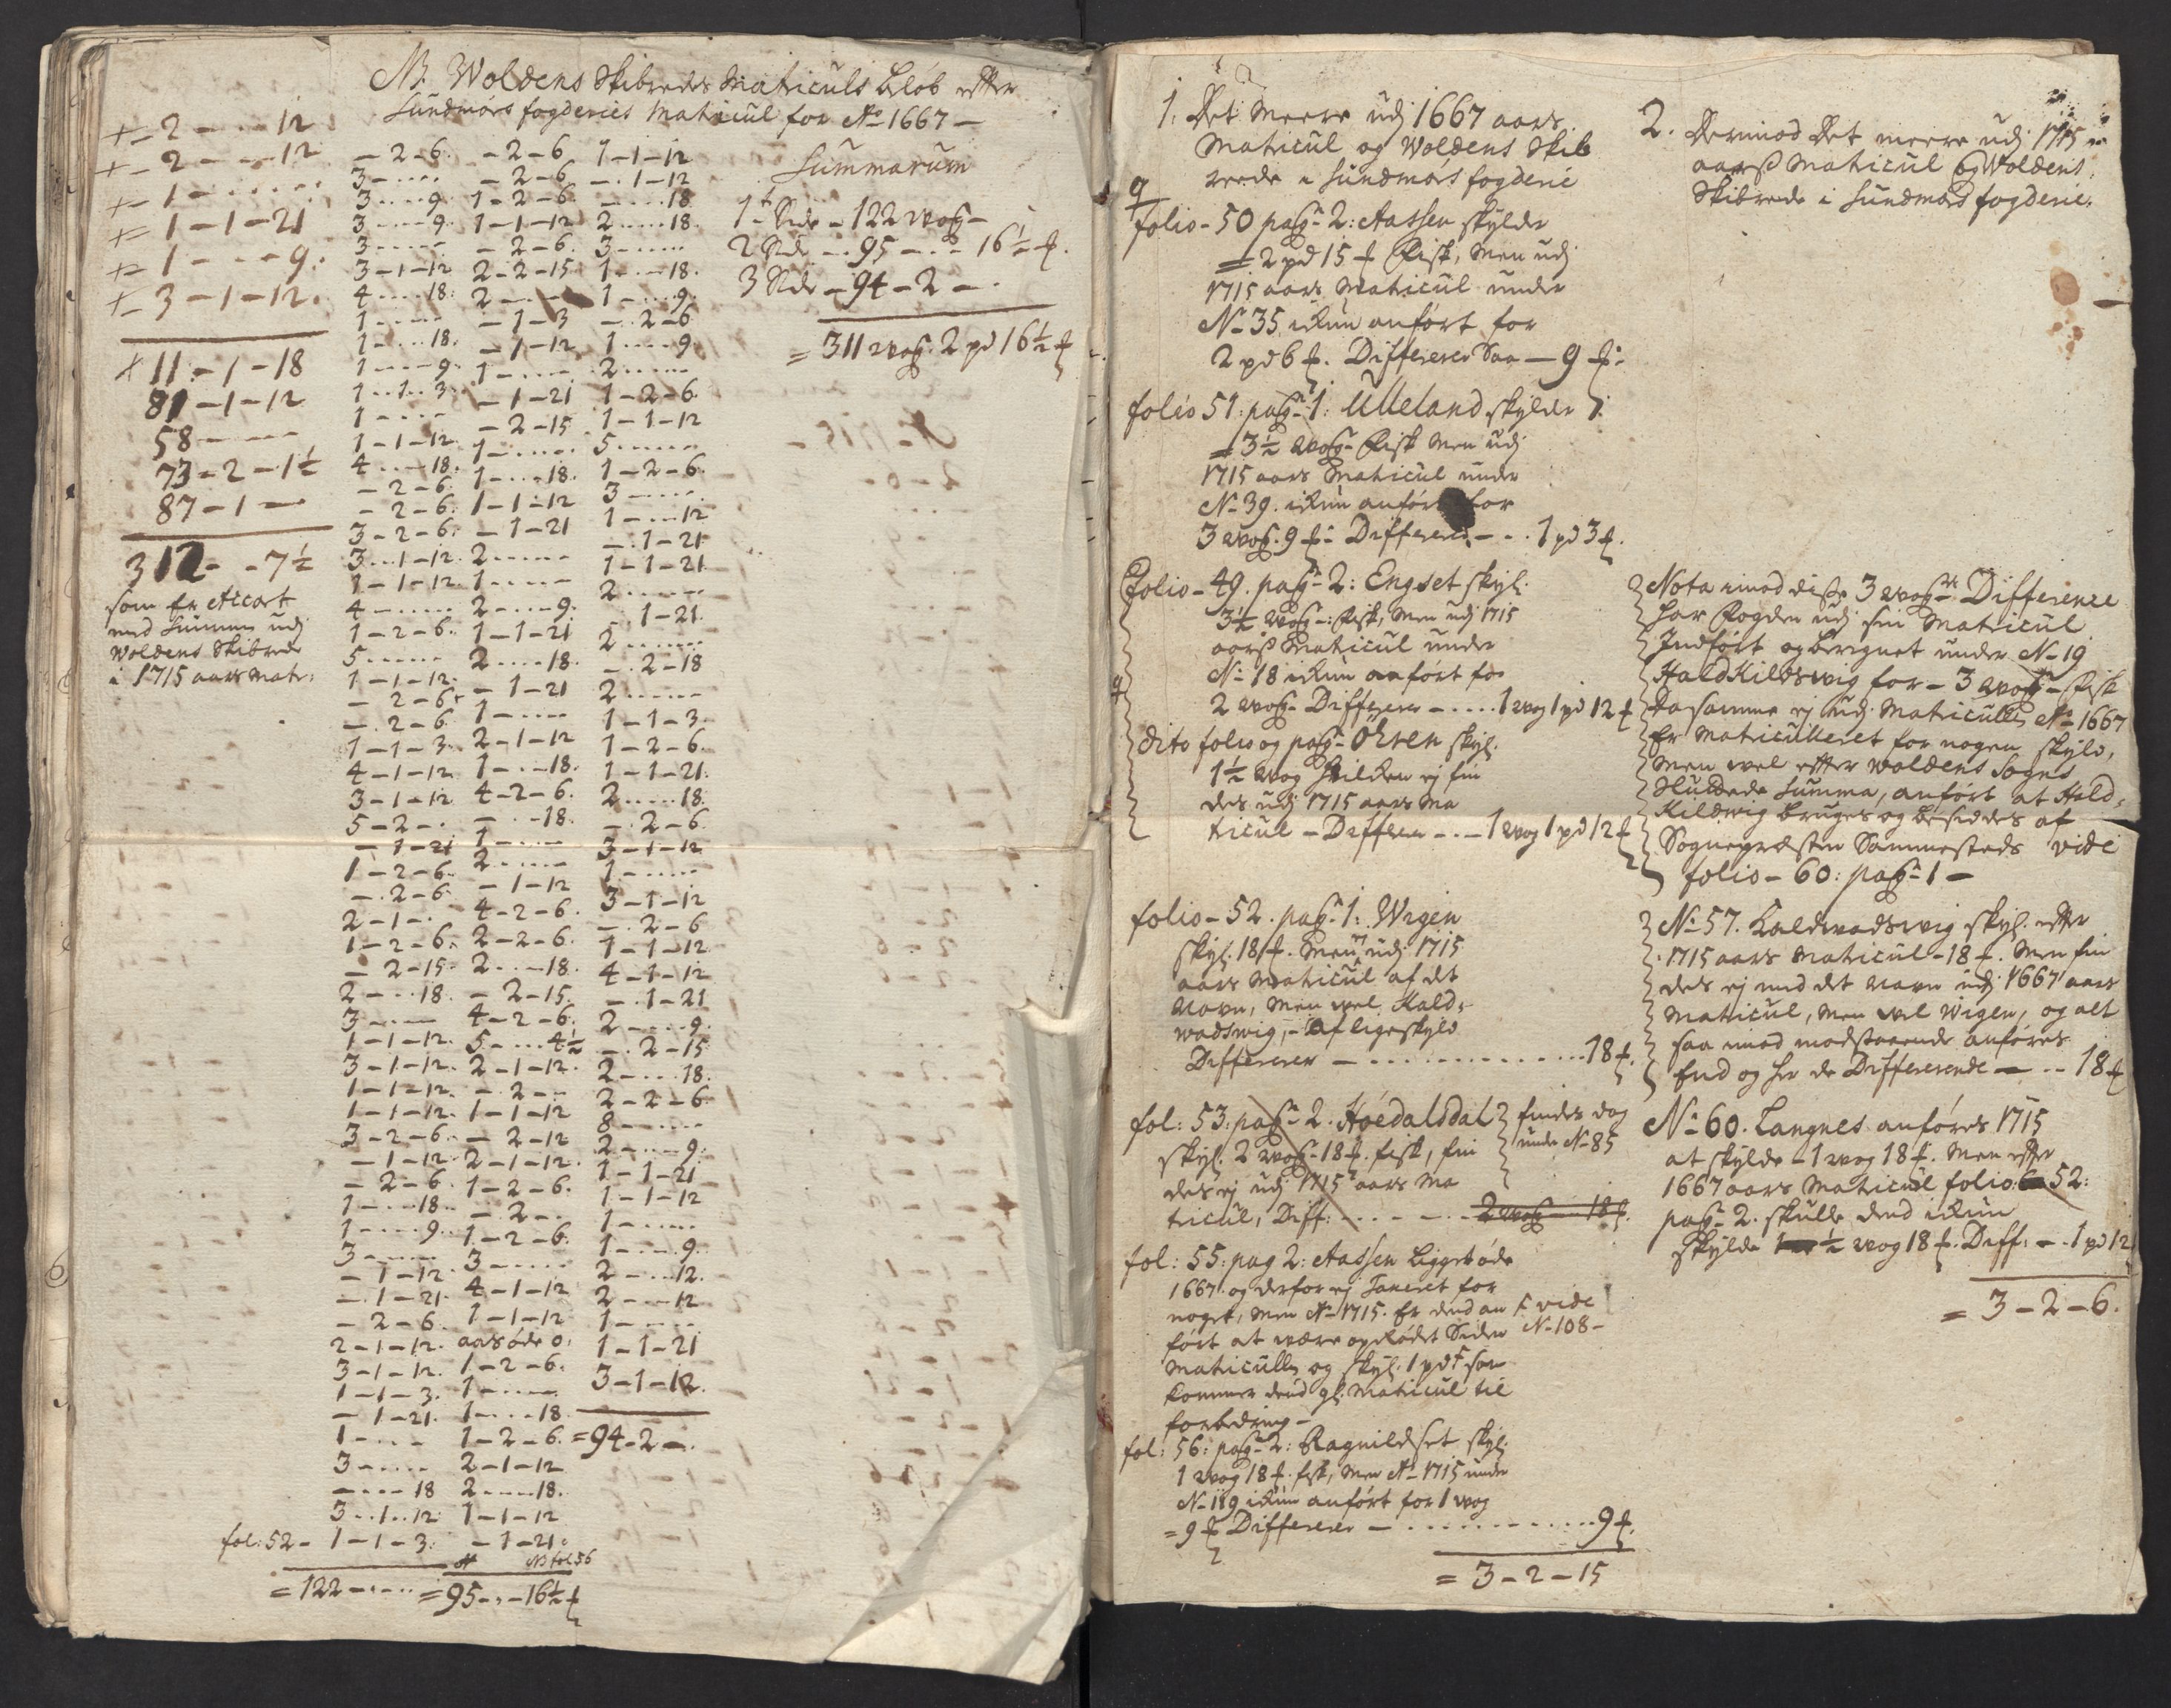 NB. Woldens Skibredes Matriculs Beløb efter
Sundmørs fogderies Matricul for Ao 1667 —
+ – 2 – – – 12
+ – 2 – – – 12
+ – 1 – . . . . .
+ – 1 – 1 – 21
+ – 1 – – – 9.
+ – 3 – 1 – 12.
+ 11 – 1 – 18
81 – 1 – 12
58 – – – –
73 – 2 – 1½
87 – 1 –
312 – – 7½
som er Accort
med Summen udj
Woldens Skibrede
i 1715 aars Matr:
– 2 – 6.
3 – . . . .
3 . . . . 9.
3 – . . – 9.
3 – . . . .
3 – 1 – 12
4 . . . . 18.
1 – . . . .
1 – . . . 18.
1 – – – 9.
1 . . 1 . . 3.
1 – . . . .
1 – 1 – 12.
4 . . . . 18.
– 2 – 6.
– 2 – 6.
3 – 2 – 6.
3 . . . 1 – 12.
1 – 1 – 12.
4 – . . . .
1 – 2 – 6.
5 – . . . .
1 – 1 – 12.
– 2 – 6.
– . 2 – 6.
1 – 1 – 3.
4 – 1 – 12
3 – 1 – 12
5 – 2 – .
– 1 – 21
1 – 2 – 6.
– . 2 – 6.
2 – 1 – .
1 – 2 – 6.
– 2 – 15.
2 – . . 18.
3 – . . .
1 – 1 – 12.
3 – 1 – 12.
1 – 1 – 12.
1 – 1 – 12.
3 – 2 – 6.
– 1 – 12.
– 2 – 6.
1 – . . . 18.
1 . . . . 9.
3 – . . . .
– 1 – 12.
– . 1 – 21.
– 2 – 6.
2 – 1 – 12.
3 – 1 – 12.
1 – 1 – 3.
– 1 – 21.
1 – . . –
3 – . . . .
– . . . 18
3 . . 1 . . 12
fol: 52 – 1 – 1 – 3.
= 122 – . . . .
– 2 – 6
– 2 – 6
1 – 2 – 6.
1 – 1 – 12
– 2 – 6.
2 – 2 – 15
2 – . . –
– 1 – 3
– 1 – 12
1 – . . . .
– 1 – 21
– 2 – 15
1 – . . . .
1 – . . . 18.
1 – 1 – 12
– 1 – 21
2 – . . . .
1 – . . . .
2 – . . . 9.
1 – 1 – 21
2 . . . . 18.
– 1 – 21
1 – . . . .
2 – 1 – 12
1 – . . – 18.
4 – 2 – 6.
– . . – 18.
1 – . . . .
2 – . . . .
– 1 – 12
4 – 2 – 6.
2 – 2 – 6.
2 . . . – 18.
– 2 – 15.
4 – 2 – 6.
5 – . . . 4½
2 – 1 – 12.
– . 2 – –
1 – 1 – 12
– 2 – 12
2 – 1 – 12.
1 – 2 – 6.
– . 2 – .
1 – 2 – 6.
3 – . . . .
4 – 1 – 12
1 – 1 – 12
aars øde 0.
1 – 2 – 6.
1 – . . . .
1 – . . . 18
1 – 2 – 6.
2 – 1 – 12
2 . . . . 18.
1 – 1 – 12
– 1 – 21.
NB fol 56
= 95 – . – 16½ ℔
1 – 1 – 12
– . 1 – 12
– . . . 18
2 . . . . . 18.
3 – . . . .
1 – . . – 18.
1 – . . . 9.
– . 2 – 6
1 . . . . 9
2 – . . . .
1 – 2 – 6
1 – 1 – 12
5 – . . . .
1 – 2 – 6.
3 – . . . .
1 – . . – 12
– . 1 – 21
1 – 1 – 21
2 – . . . .
. 1 – 21.
2 – . . . .
– . 2 – 18
2 – . . . .
1 – 1 – 3.
1 – 2 – 6.
1 – 1 – 21.
2 . . . . . 18
– . 2 – 6.
3 – 1 – 12
1 – . . . .
3 – 1 – 12
– . 2 – 6
1 – 1 – 12
4 – 1 – 12
– . 1 – 21
2 – . . . 9.
– . 2 – 15
2 – . . . 18.
2 – 2 – 6
8 – . . . .
2 – . . – 9.
1 – 1 – 21
1 – 1 – 12
1 – . . . .
1 – . . – 9.
2 – . . . 12.
2 – . . – 12
1 – . . . .
1 – 1 – 21
3 – 1 – 12.
= 94 – 2 – .
Summarum
1te Side – 122 wog –
2 Side – . . 95 – . . – 16½ ℔.
3 Side – 94 – 2 – .
= 311 wog. 2 pd 16½ ℔
1. Det Meere udj 1667 aars
Matricul og Woldens Skib
reede i Sundmørs fogderie
folio – 50 pag – 2: Aassen skylder
= 2 pd 15 ℔ Fisk, Men udj
1715 aars Matricul under
No 35 ikkun anført for
2 pd 6 ℔. Differerer Saa — 9 ℔.
folio 51: pag – 1: Ulleland skylder
= 3½ wog – Fisk Men udj
1715 aars Matricul under
No 39. ikkun anført for
3 wog. 9 ℔ Differerer – . . 1 pd 3 ℔.
Folio – 49. pag – 2: Engset skyl.
3½ wog – Fisk, Men udj 1715
aars Matricul under
No 18 ikkun anført for
2 wog – Differerer – . . . . 1 wog 1 pd 12 ℔
dito folio og pag – Ørven skyl.
1½ wog hvilken ej fin
des udj 1715 aars Ma
tricul – Differerer – . – 1 wog 1 pd 12 ℔
folio – 52. pag – 1: Wigen
skyl. 18 ℔. Men ej udj 1715
aars Matricul af det
Navn, Men vel Kald-
wadswig, – Af ligeskyld
Differerer – . . . . . . . . . . . . 18 ℔.
fol: 53: pag – 2. Høedalsdal
skyl. 2 wog – 18 ℔. fisk, fin
des ej udj 1715 aars Ma
tricul, Diff: . . . . . – 2 wog – 18 ℔.
findes dog
under No 85
fol: 55: pag 2: Aassen Ligger øde
1667 og derfor ej Taxeret for
noget, Men Ao 1715. Er dend an
ført at være opRødet Siden
Matricullen og skyl. 1 pd som
kommer dend gl. Matricul til
forbedring –
vide
No 108 –
fol: 56: pag – 2: Ragnildset skyl.
1 wog 18 ℔. fisk, Men Ao 1715 under
No 119 ikkun anført for 1 wog
= 9 ℔ Differerer – . . . . . . . . . . . 9 ℔.
= 3 – 2 – 15
2. Derimod Det meere udj 1715
aars Matricul og Woldens
Skibrede i Sundmørs fogderie.
Nota imod disse 3 wog Difference
har Fogden udj sin Matricul
Indført og beregnet under No 19
HaldKildswig for – 3 wog – Fisk
Da samme ej udj Matricullen Ao 1667
Er Matriculleret for nogen skyld,
Men vel efter Woldens Sogns
Sluttede Summa, anført at Hald-
Kildswig bruges og besiddes af
Sognepræsten Sammesteds vide
folio – 60: pag – 1 –
No 57. Kaldwadswig skyl. efter
1715 aars Matricul – 18 ℔. Men fin
des ej med det Navn udj 1667 aars
Matricul, Men vel Wigen, og alt
saa imod modstaaende anføres
End og her de Differerende – . . 18 ℔
No 60. Langnes anføres 1715
at skylde – 1 wog 18 ℔. Men efter
1667 aars Matricul folio 52:
pag – 2. skulle dend ikkun
skylde ½ wog 18 ℔. Diff: – . 1 pd 12
= 3 – 2 – 6.